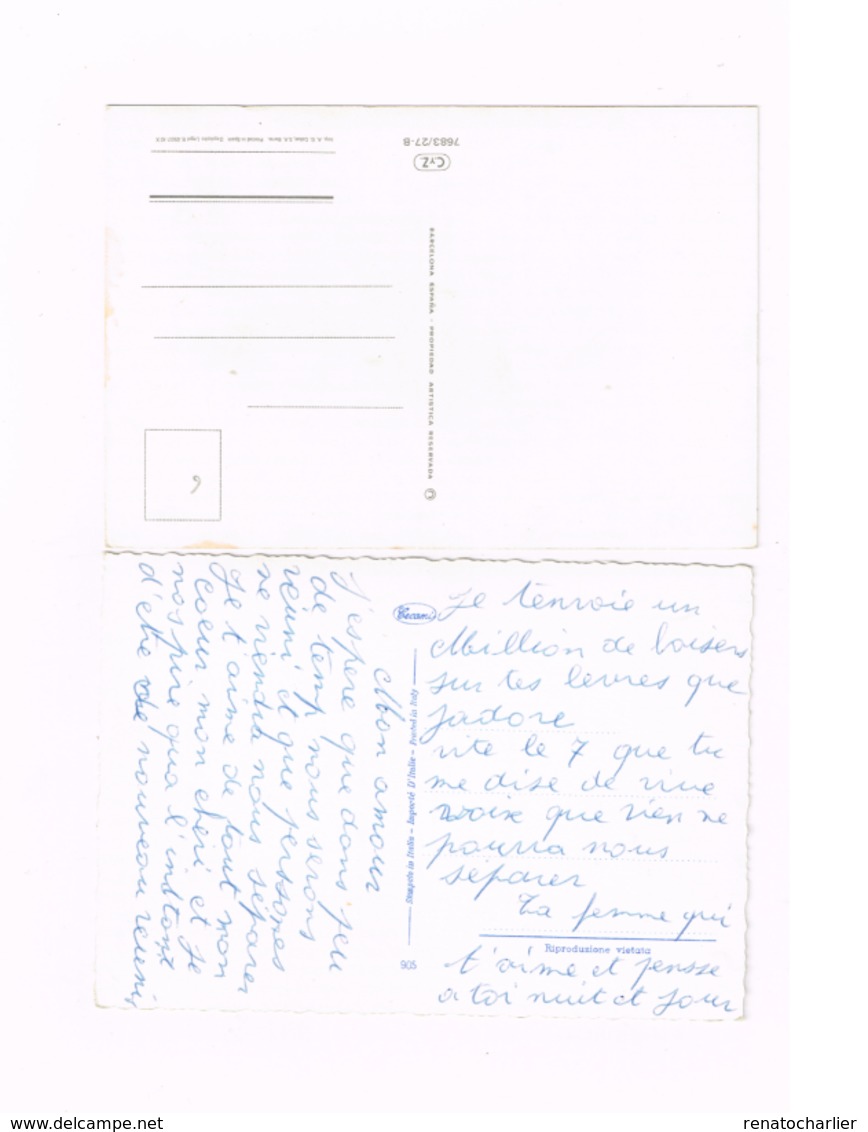 7683/27-B
CyZ
BARCELONA ESPAÑA - PROPIEDAD ARTISTICA RESERVADA ©
6
Mon amour
J'espere que dans peu
de temp nous serons
réuni et que personnes
ne viendra nous séparer
Je t'aime de tout mon
coeur mon chéri et Je
nospire qua l'instant
d'etre de nouveau reunir
Cecami
Stampato in Italia - Importé D'Italie - Printed in Italy
905
Je tenvoie un
Million de baisers
sur tes levres que
Jadore
vite le 7 que tu
me dise de vive
voix que rien ne
pourra nous
séparer
Ta femme qui
Riproduzione vietata
t'aime et pensse
a toi nuit et Jour
www.delcampe.net
renatocharlier